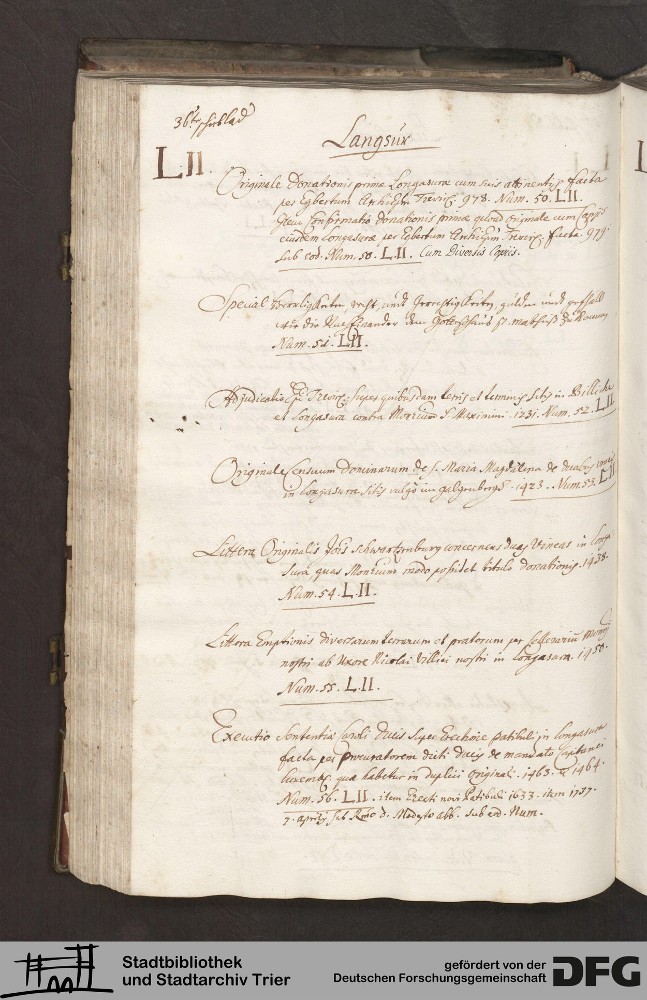 36te schublad
Langsur
L.II.
Originale Donationis primæ Longasuræ cum suis attinentijs facta
per Egbertum Archiepm Trevir. 978. Num. 50. L.II.
Item Confirmatio donationis primæ quoad originale cum
eiusdem Longasuræ per Egbertum Archiepm Trevir. facta. 979.
sub eod. Num. 50. L.II. Cum Diversis Copiis.
Special Herrligkeiten, recht, und Gerechtigkeiten, gülden und
wie die dem Gotteshaus St. Mathiß
Num. 51. LII.
Adjudicatio Trevir. super quibusdam terris et sitis in Billicke
et Longasura contra Monrium S. Maximini. 1231. Num. 52. L.II
Originale Censuum Dominarum de S. Maria Magdalena de duabus
in Longasura sitis vulgo im galgenberg. 1423. Num. 53. L.II
Littera Originalis Jois Schwartzenburg concernens duas Vineas in Longa
sura, quas Monrium modo possidet titulo donationis. 1438.
Num. 54. L.II.
Littera Emptionis diversarum terrarum et pratorum per Cellerarium Monrij
nostri ab Uxore Nicolai Villici nostri in Longasura. 1450.
Num. 55. L.II.
Executio Sententiæ Caroli Ducis super Erectione patibuli in Longasura
facta per procuratorem dicti Ducis de mandato Capitanei
Luxemb. quæ habetur in duplici Originali. 1463. et 1464.
Num. 56. L.II. item Erecti novi Patibuli 1633. item 1737.
7. aprilis sub Rmo D. Modesto abb. sub eod. Num.
Stadtbibliothek
und Stadtarchiv Trier
gefördert von der
Deutschen Forschungsgemeinschaft
DFG